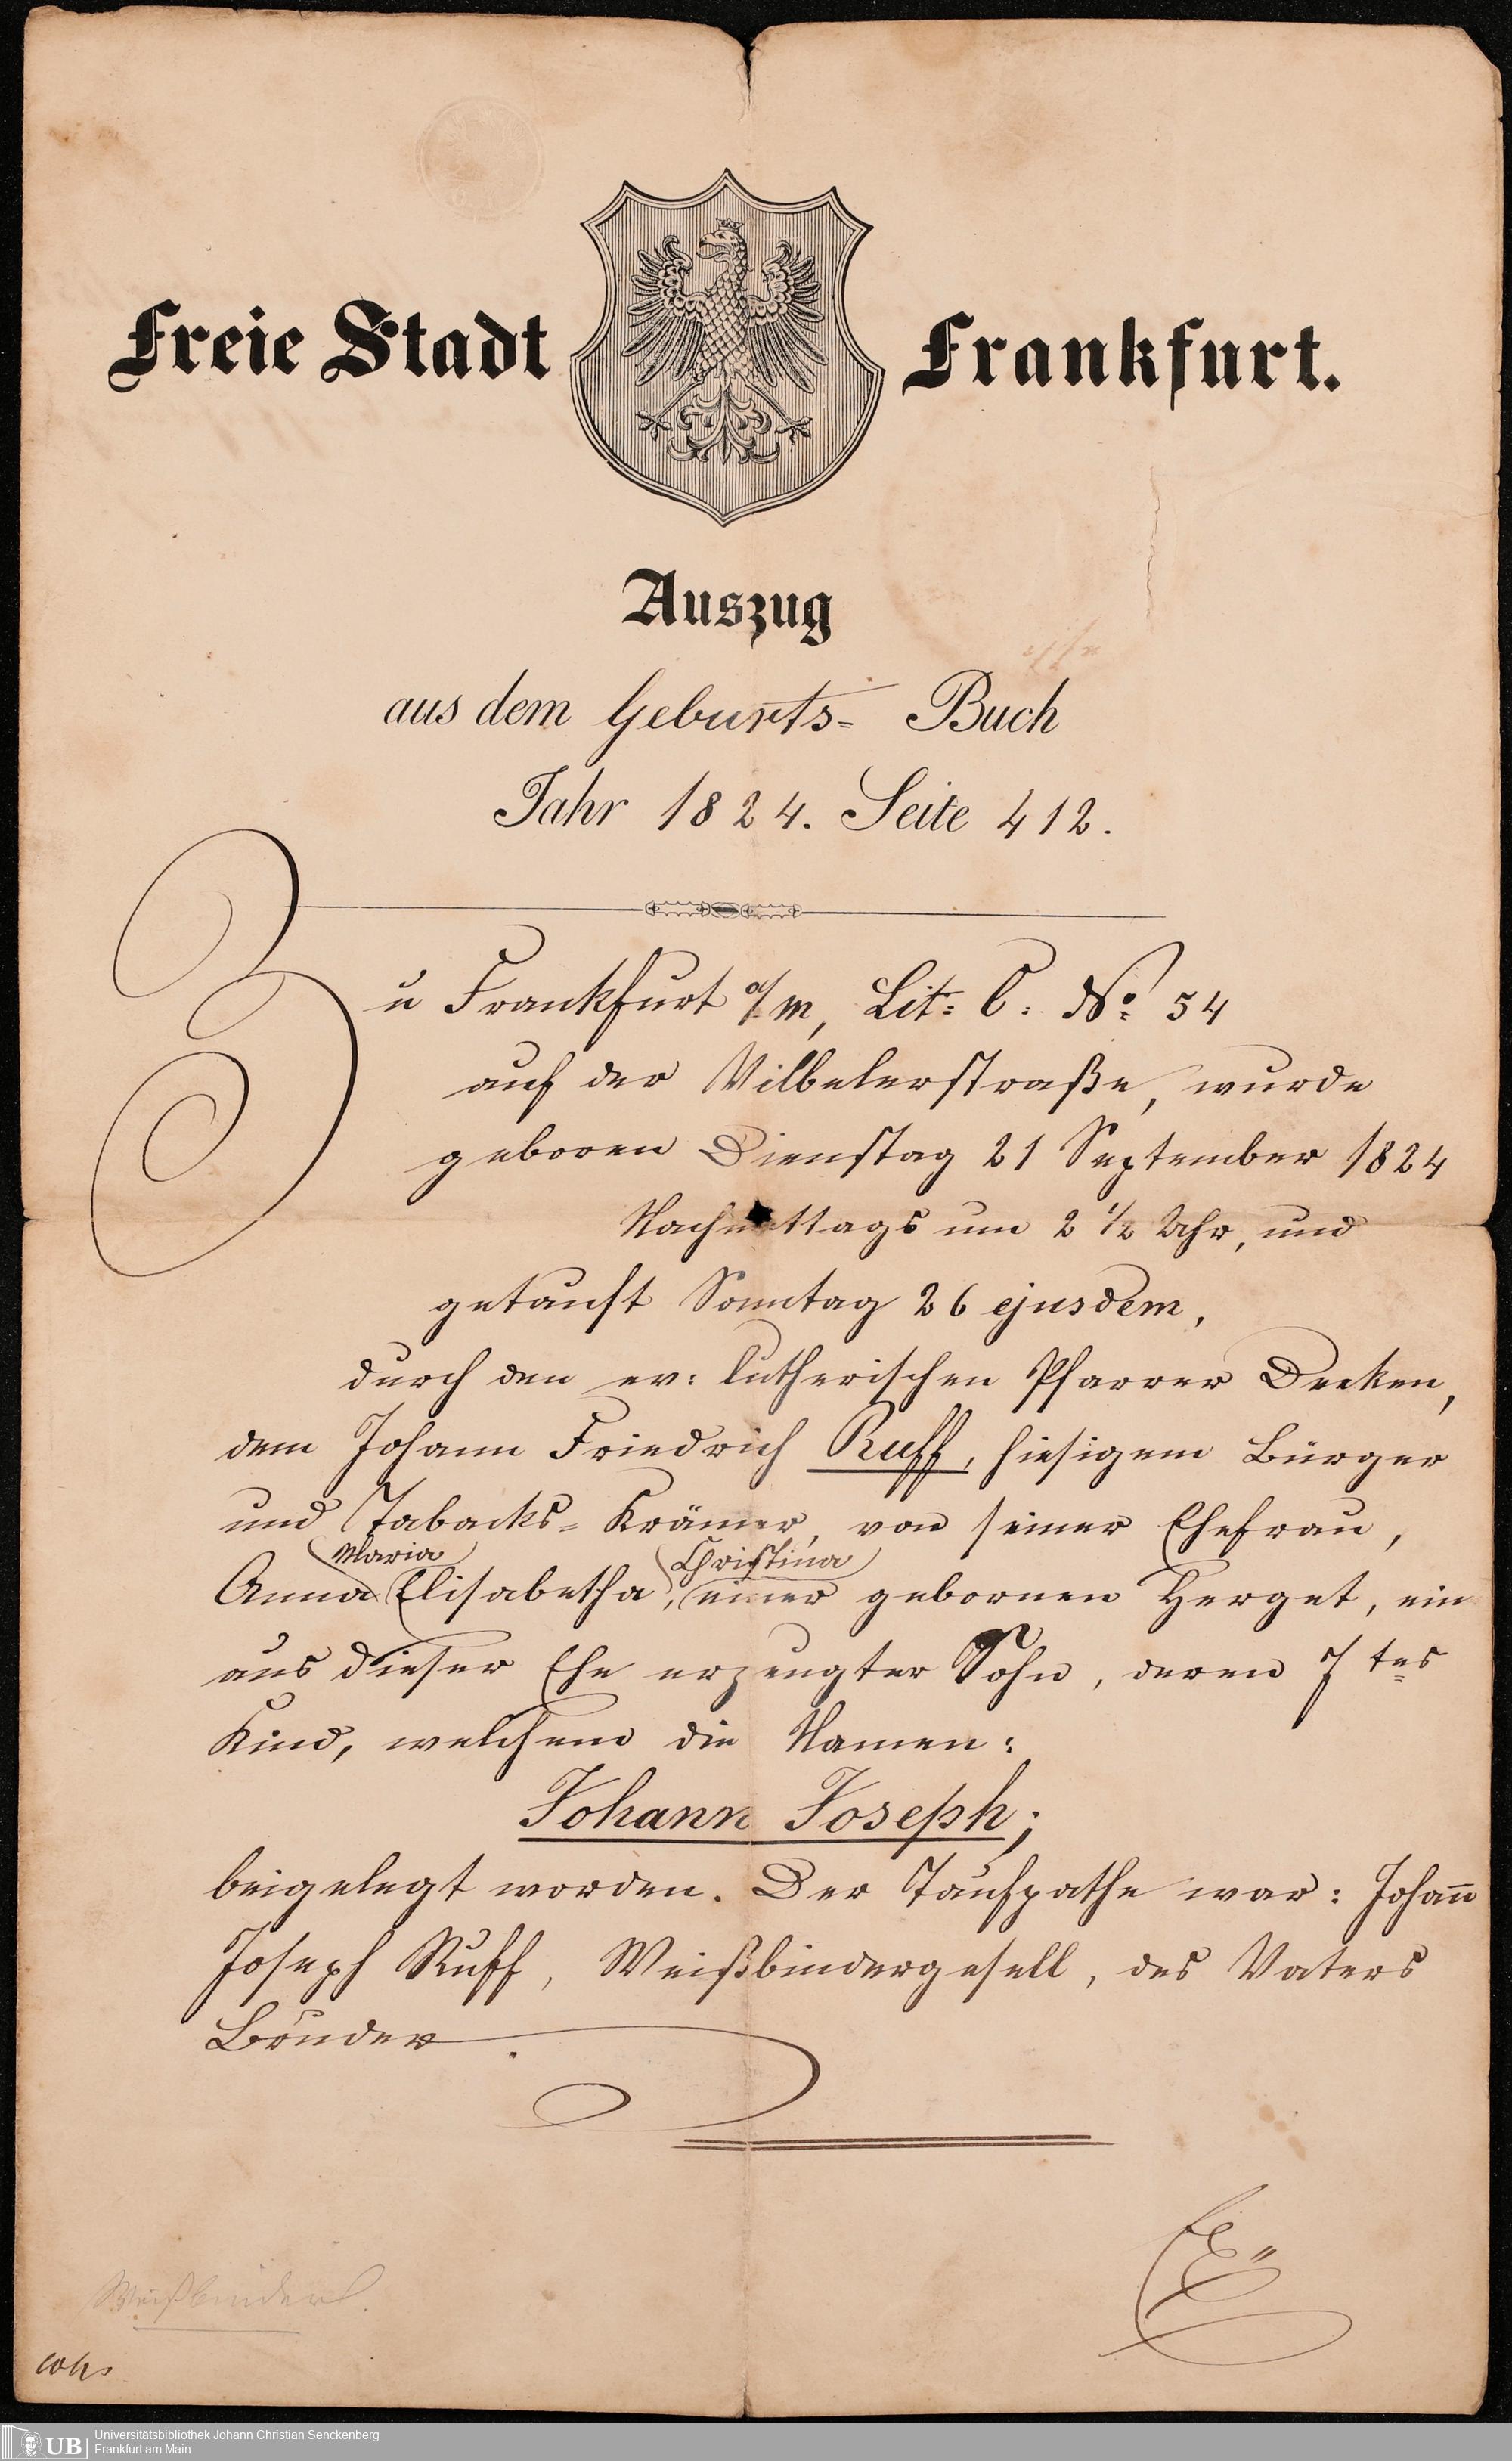 Freie Stadt Frankfurt.
Auszug
aus dem Geburts- Buch
Jahr 1824. Seite 412.
Zu Frankfurt a/m, Lit: C: No. 54
auf der Vilbelerstraße, wurde
geboren Dienstag 21 September 1824
Nachmittags um 2 1/2 Uhr, und
getauft Sonntag 26 ejusdem,
durch den ev: lutherischen Pfarrer Deeken,
dem Johann Friedrich Ruff, hiesigem Bürger
und Tabacks-Krämer, von seiner Ehefrau,
Maria Christina
Anna Elisabetha, einer gebornen Herget, ein
aus dieser Ehe erzeugter Sohn, deren 7tes
Kind, welchem die Namen:
Johann Joseph;
beigelegt worden. Der Taufpathe war: Johan̅n̅
Joseph Ruff, Weißbindergesell, des Vaters
Bruder.
Weißbinder.
Universitätsbibliothek Johann Christian Senckenberg
UB Frankfurt am Main